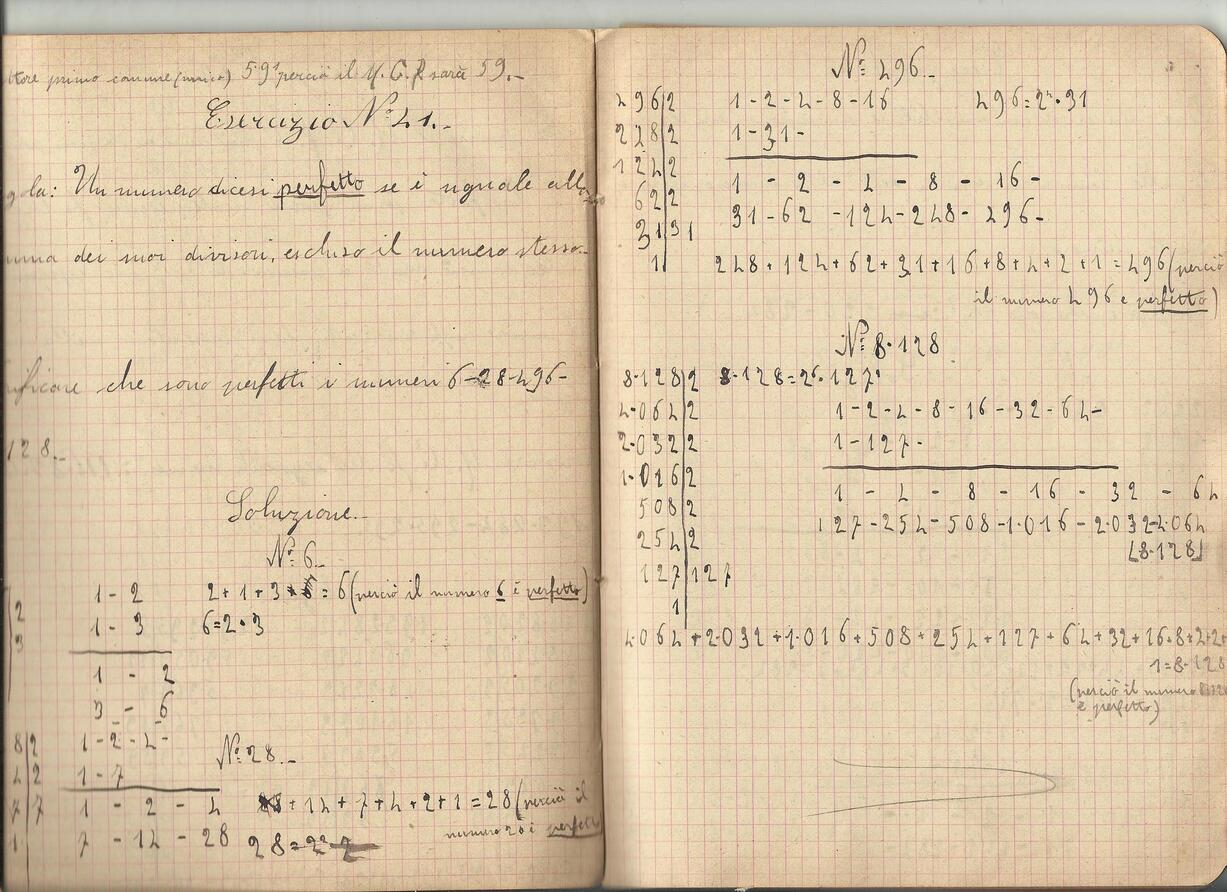 primo comune (unico) 59¹ perciò il M.C.D. sarà 59.-
Esercizio Nº 41.-
gola: Un numero dicesi perfetto se è uguale alla
mma dei suoi divisori, escluso il numero stesso.-
rificare che sono perfetti i numeri 6-28-496-
128.-
Soluzione.-
Nº 6.-
2
3
1 - 2
1 - 3
1 - 2
3 - 6
2+1+3 = 6 (perciò il numero 6 è perfetto)
6=2•3
Nº 28.-
8|2
4|2
7|7
1|
1-2-4-
1-7
1 - 2 - 4
7 - 14 - 28
+ 14 + 7 + 4 + 2 + 1 = 28 (perciò il
numero 28 è perfetto
28=2²•7
Nº 496.-
496|2
248|2
124|2
62|2
31|31
1|
1-2-4-8-16
1-31-
496=2⁴•31
1 - 2 - 4 - 8 - 16 -
31-62-124-248-496-
248+124+62+31+16+8+4+2+1=496 (perciò
il numero 496 è perfetto)
Nº 8.128
8.128|2
4.064|2
2.032|2
1.016|2
508|2
254|2
127|127
1|
8.128=2⁶•127¹
1-2-4-8-16-32-64-
1-127-
1 - 4 - 8 - 16 - 32 - 64
127-254-508-1.016-2.032-4.064
[8.128]
4.064+2.032+1.016+508+254+127+64+32+16+8+4+2+
1=8.128
(perciò il numero 8.128
è perfetto)